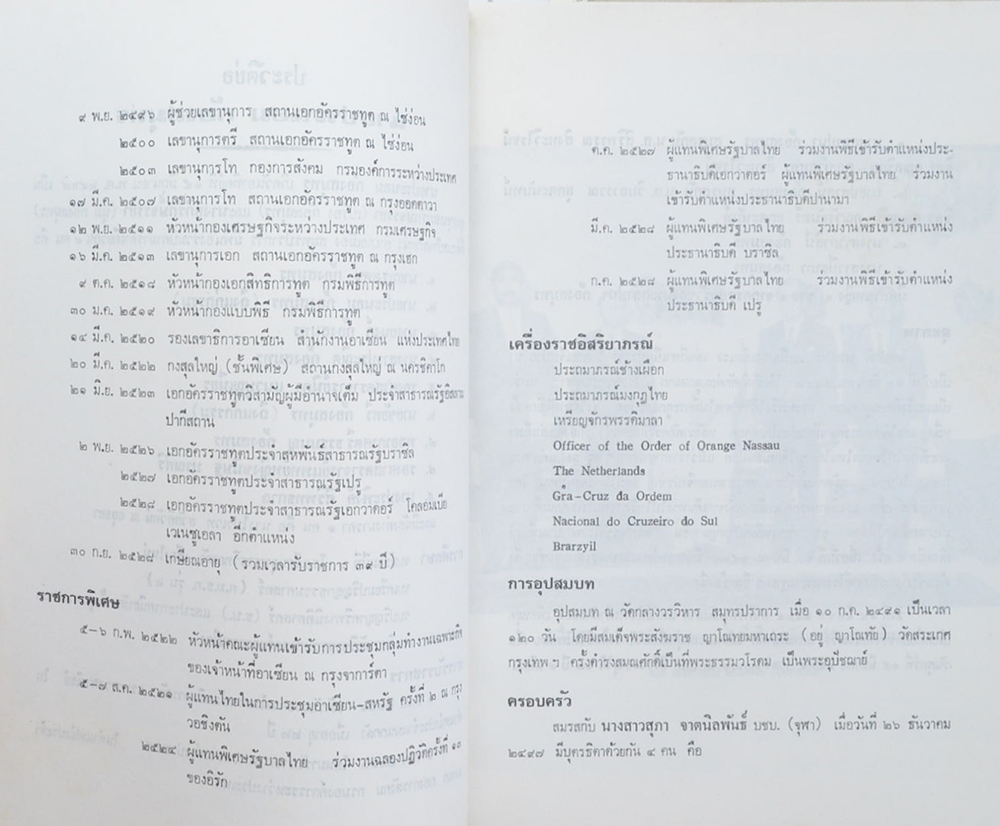 ๙ พ.ย. ๒๔๙๖ ผู้ช่วยเลขานุการ สถานเอกอัครราชทูต ณ ไซ่ง่อน
๒๕๐๐ เลขานุการตรี สถานเอกอัครราชทูต ณ ไซ่ง่อน
๒๕๐๓ เลขานุการโท กองการสังคม กรมองค์การระหว่างประเทศ
๑๗ มี.ค. ๒๕๐๗ เลขานุการโท สถานเอกอัครราชทูต ณ กรุงออตตาวา
๑๒ พ.ย. ๒๕๑๑ หัวหน้ากองเศรษฐกิจระหว่างประเทศ กรมเศรษฐกิจ
๑๖ มี.ค. ๒๕๑๓ เลขานุการเอก สถานเอกอัครราชทูต ณ กรุงเฮก
๙ ต.ค. ๒๕๑๘ หัวหน้ากองเอกสิทธิการทูต กรมพิธีการทูต
๓๐ ม.ค. ๒๕๑๙ หัวหน้ากองแบบพิธี กรมพิธีการทูต
๑๔ มี.ค. ๒๕๒๐ รองเลขาธิการอาเซียน สำนักงานอาเซียน แห่งประเทศไทย
๒๐ มี.ค. ๒๕๒๒ กงสุลใหญ่ (ชั้นพิเศษ) สถานกงสุลใหญ่ ณ นครชิคาโก
๒๑ มิ.ย. ๒๕๒๓ เอกอัครราชทูตวิสามัญผู้มีอำนาจเต็ม ประจำสาธารณรัฐอิสลาม
ปากีสถาน
๒ พ.ย. ๒๕๒๖ เอกอัครราชทูตประจำสหพันธ์สาธารณรัฐบราซิล
๒๕๒๗ เอกอัครราชทูตประจำสาธารณรัฐเปรู
๒๕๒๘ เอกอัครราชทูตประจำสาธารณรัฐเอกวาดอร์ โคลอมเบีย
เวเนซูเอลา อีกตำแหน่ง
๓๐ ก.ย. ๒๕๒๘ เกษียณอายุ (รวมเวลารับราชการ ๓๙ ปี)
ราชการพิเศษ
๕-๖ ก.พ. ๒๕๒๒ หัวหน้าคณะผู้แทนเข้ารับการประชุมกลุ่มทำงานเฉพาะกิจ
ของเจ้าหน้าที่อาเซียน ณ กรุงจาการ์ตา
๕-๗ ส.ค. ๒๕๒๑ ผู้แทนไทยในการประชุมอาเซียน-สหรัฐ ครั้งที่ ๒ ณ กรุง
วอชิงตัน
๒๕๒๔ ผู้แทนพิเศษรัฐบาลไทย ร่วมงานฉลองปฏิวัติครั้งที่ ๑๓
ของอิรัก
ต.ค. ๒๕๒๗ ผู้แทนพิเศษรัฐบาลไทย ร่วมงานพิธีเข้ารับตำแหน่งประ-
ธานาธิบดีเอกวาดอร์ ผู้แทนพิเศษรัฐบาลไทย ร่วมงาน
เข้ารับตำแหน่งประธานาธิบดีปานามา
มี.ค. ๒๕๒๘ ผู้แทนพิเศษรัฐบาลไทย ร่วมงานพิธีเข้ารับตำแหน่ง
ประธานาธิบดี บราซิล
ก.ค. ๒๕๒๘ ผู้แทนพิเศษรัฐบาลไทย ร่วมงานพิธีเข้ารับตำแหน่ง
ประธานาธิบดี เปรู
เครื่องราชอิสริยาภรณ์
ประถมาภรณ์ช้างเผือก
ประถมาภรณ์มงกุฎไทย
เหรียญจักรพรรดิมาลา
Officer of the Order of Orange Nassau
The Netherlands
Gra-Cruz da Ordem
Nacional do Cruzeiro do Sul
Brarzyil
การอุปสมบท
อุปสมบท ณ วัดกลางวรวิหาร สมุทรปราการ เมื่อ ๑๐ ก.ค. ๒๔๙๑ เป็นเวลา
๑๒๐ วัน โดยมีสมเด็จพระสังฆราช ญาโณทยมหาเถระ (อยู่ ญาโณทัย) วัดสระเกศ
กรุงเทพ ฯ ครั้งดำรงสมณศักดิ์เป็นที่พระธรรมวโรดม เป็นพระอุปัชฌาย์
ครอบครัว
สมรสกับ นางสาวสุภา จาตนิลพันธ์ บชบ. (จุฬา) เมื่อวันที่ ๒๖ ธันวาคม
๒๔๙๗ มีบุตรธิดาด้วยกัน ๔ คน คือ